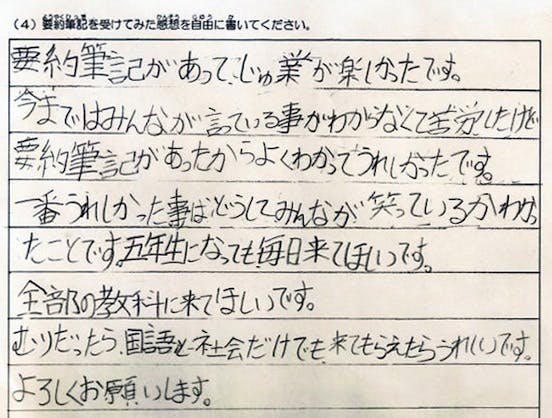 (4)要約筆記を受けてみた感想を自由に書いてください。
要約筆記があって、じゅ業が楽しかったです。
今まではみんなが言っている事がわからなくて苦労したけど
要約筆記があったからよくわかってうれしかったです。
一番うれしかった事はどうしてみんなが笑っているかわかっ
たことです。五年生になっても毎日来てほしいです。
全部の教科に来てほしいです。
むりだったら、国語と社会だけでも、来てもらえたらうれしいです。
よろしくお願いします。